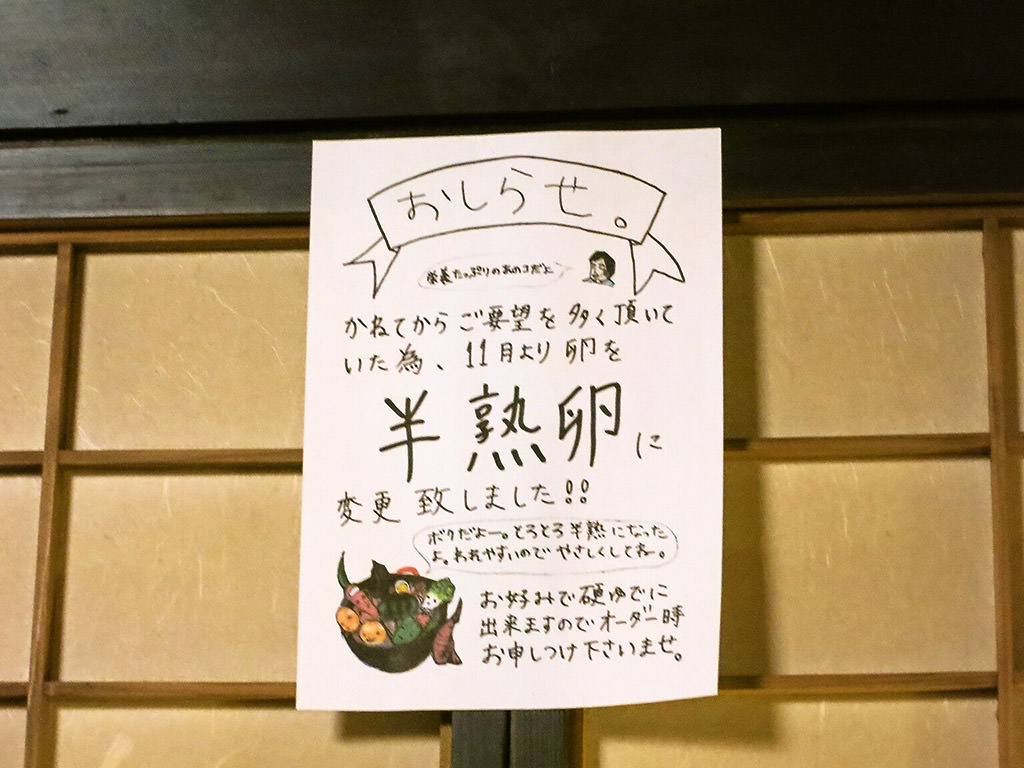 おしらせ。
栄養たっぷりのあのコだよ
かねてからご要望を多く頂いて
いた為、11月より卵を
半熟卵に
変更致しました!!
ボクだよー。とろとろ半熟になった
よ。われやすいのでやさしくしてねー。
お好みで硬ゆでに
出来ますのでオーダー時
お申しつけ下さいませ。